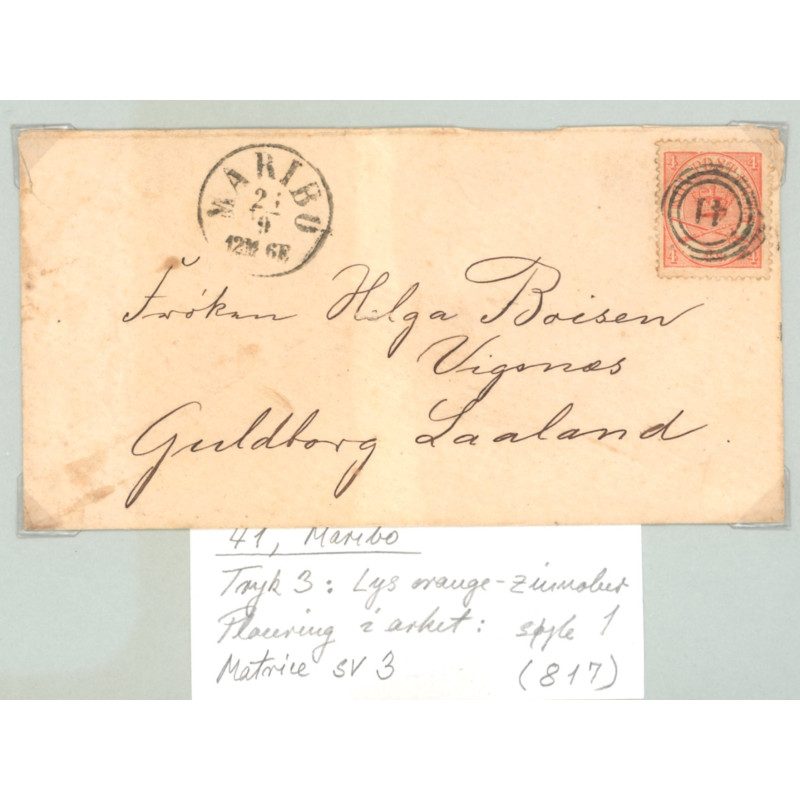 MARIBO
2
9
12M 6E
4
4
41
4
4
Frøken Helga Boisen
Vigsnæs
Guldborg Laaland.
41, Maribo
Tryk 3: Lys orange-zinnober
Placering i arket: søjle 1
Matrice SV 3 (817)